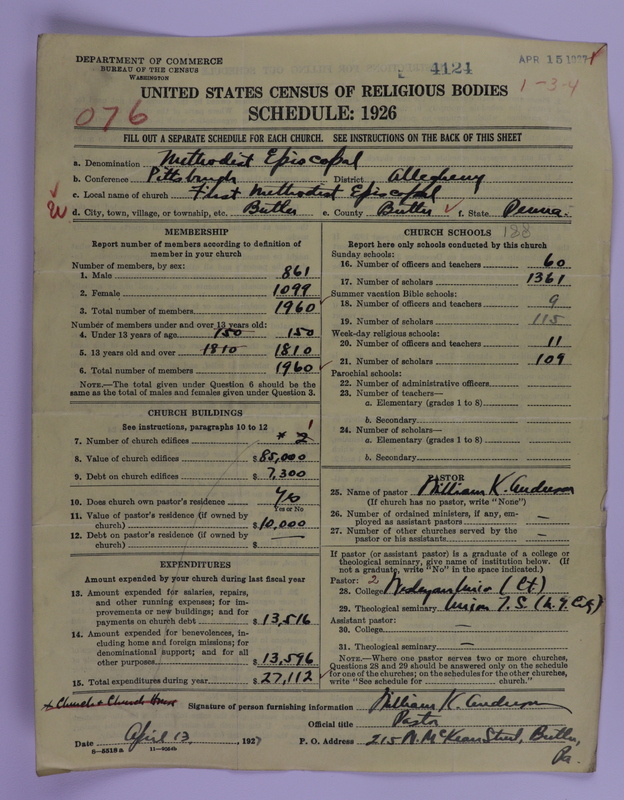 DEPARTMENT OF COMMERCE
BUREAU OF THE CENSUS
WASHINGTON
4124
APR 15 1927
1-3-4
UNITED STATES CENSUS OF RELIGIOUS BODIES
SCHEDULE: 1926
076
FILL OUT A SEPARATE SCHEDULE FOR EACH CHURCH. SEE INSTRUCTIONS ON THE BACK OF THIS SHEET
a. Denomination Methodist Episcopal
b. Conference Pittsburgh District Allegheny
c. Local name of church First Methodist Episcopal
d. City, town, village, or township, etc. Butler e. County Butler f. State Penna.
MEMBERSHIP
Report number of members according to definition of
member in your church
Number of members, by sex:
1. Male 861
2. Female 1099
3. Total number of members 1960
Number of members under and over 13 years old:
4. Under 13 years of age 150 150
5. 13 years old and over 1810 1810
6. Total number of members 1960
NOTE.—The total given under Question 6 should be the
same as the total of males and females given under Question 3.
CHURCH BUILDINGS
See instructions, paragraphs 10 to 12
7. Number of church edifices * 2 1
8. Value of church edifices $ 85,000
9. Debt on church edifices $ 7,300
10. Does church own pastor's residence Yes
Yes or No
11. Value of pastor's residence (if owned by
church) $ 10,000
12. Debt on pastor's residence (if owned by
church) $ —
EXPENDITURES
Amount expended by your church during last fiscal year
13. Amount expended for salaries, repairs,
and other running expenses; for im-
provements or new buildings; and for
payments on church debt $ 13,516
14. Amount expended for benevolences, in-
cluding home and foreign missions; for
denominational support; and for all
other purposes $ 13,596
15. Total expenditures during year $ 27,112
CHURCH SCHOOLS 188
Report here only schools conducted by this church
Sunday schools:
16. Number of officers and teachers 60
17. Number of scholars 1361
Summer vacation Bible schools:
18. Number of officers and teachers 9
19. Number of scholars 115
Week-day religious schools:
20. Number of officers and teachers 11
21. Number of scholars 109
Parochial schools:
22. Number of administrative officers
23. Number of teachers—
a. Elementary (grades 1 to 8)
b. Secondary
24. Number of scholars—
a. Elementary (grades 1 to 8)
b. Secondary
PASTOR
25. Name of pastor William K. Anderson
(If church has no pastor, write "None")
26. Number of ordained ministers, if any, em-
ployed as assistant pastors —
27. Number of other churches served by the
pastor or his assistants —
If pastor (or assistant pastor) is a graduate of a college or
theological seminary, give name of institution below. (If
not a graduate, write "No" in the space indicated.)
Pastor: 2
28. College Wesleyan Univ. (Ct)
29. Theological seminary Union T. S. (N.Y. City)
Assistant pastor:
30. College —
31. Theological seminary —
NOTE.—Where one pastor serves two or more churches,
Questions 28 and 29 should be answered only on the schedule
for one of the churches; on the schedules for the other churches,
write "See schedule for church."
* Church + Church House
Signature of person furnishing information William K. Anderson
Official title Pastor
Date April 13, 1927 P. O. Address 215 N. McKean Street, Butler,
Pa.
8-5518 a